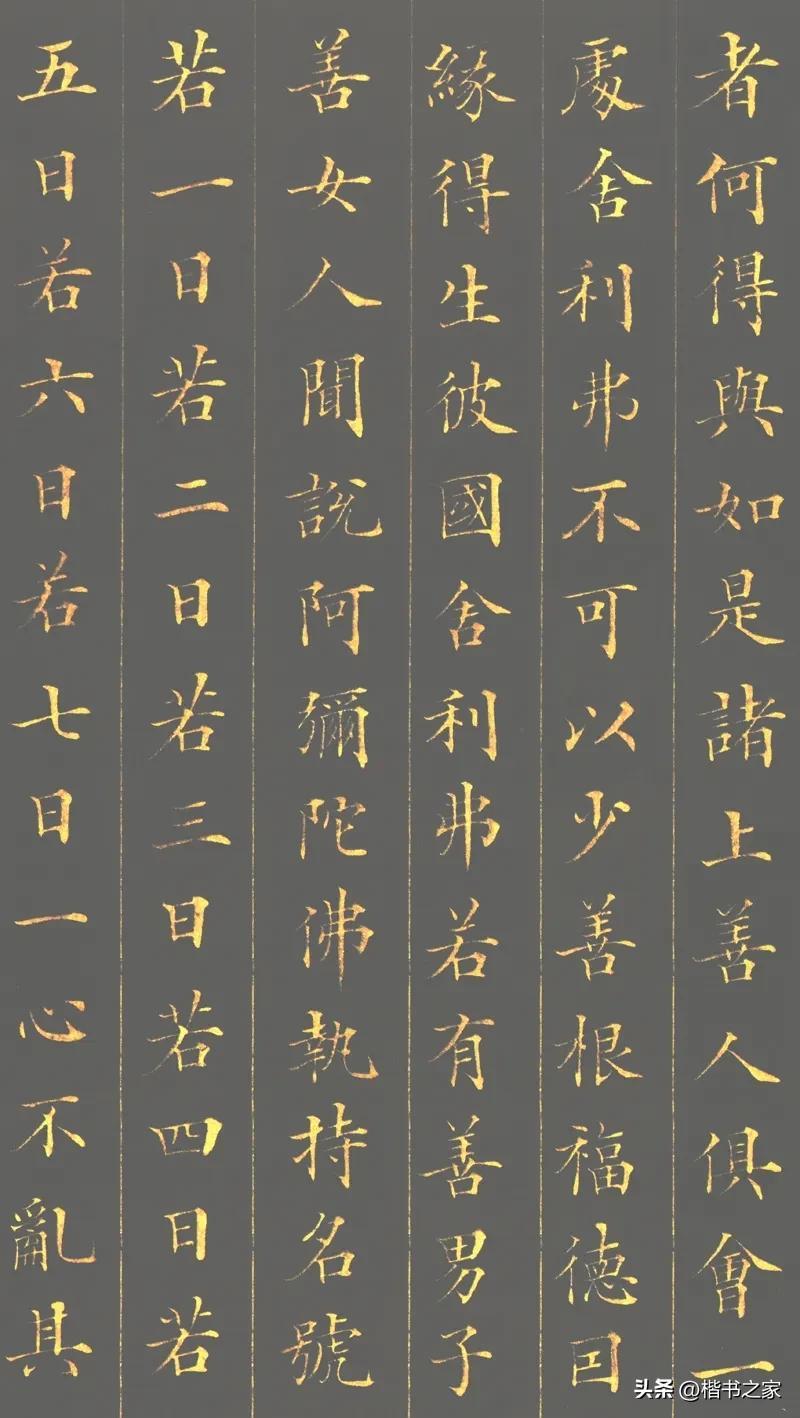 者何得與如是諸上善人俱會一
處舍利弗不可以少善根福德因
緣得生彼國舍利弗若有善男子
善女人聞說阿彌陀佛執持名號
若一日若二日若三日若四日若
五日若六日若七日一心不亂其
头条 @楷书之家